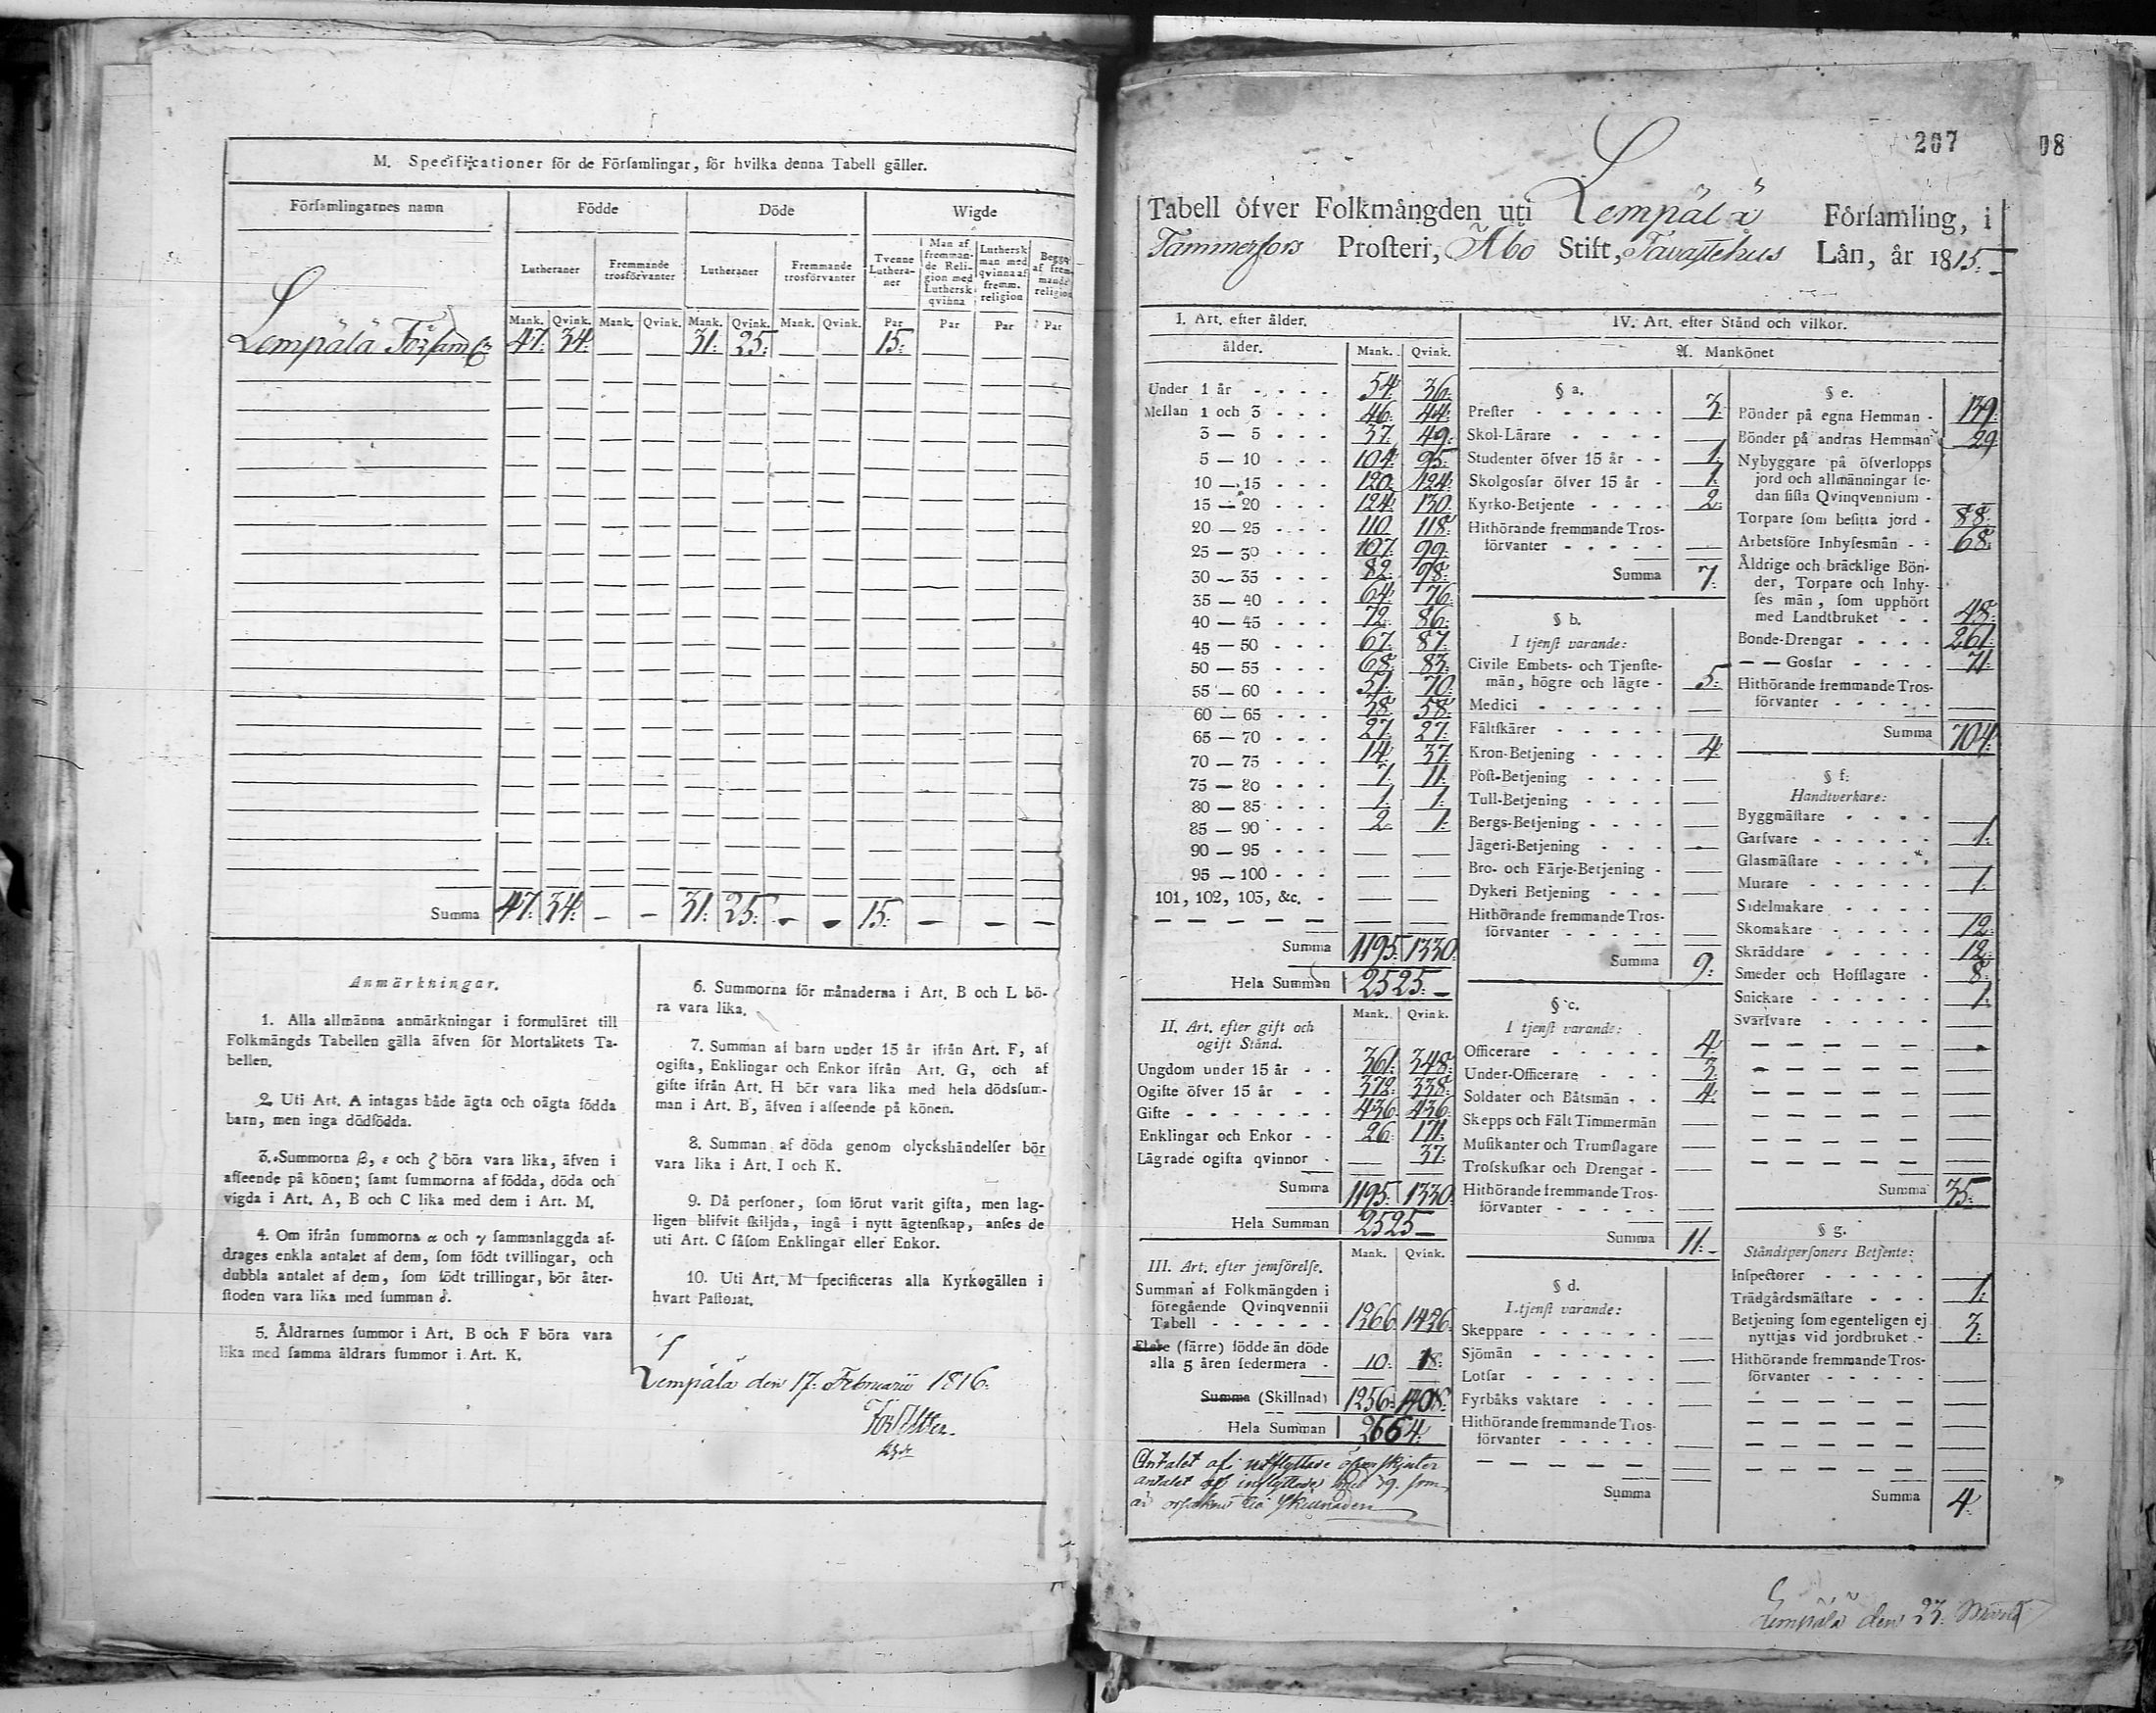 M. Specificationer för de Församlingar, för hvilka denna Tabell gäller.
Församlingarnes namn Födde Döde Wigde
Lutheraner Fremmande trosförvanter Lutheraner Fremmande trosförvanter Tvenne Lutheraner Man af fremmande Religion med Luthersk qvinna Luthersk man med qvinna af fremm. religion Begge af fremmande religion
Mank. Qvink. Mank. Qvink. Mank. Qvink. Mank. Qvink. Par Par Par Par
Lempälä Församl. 47. 34. — — 31. 25. — — 15. — — —
Summa 47. 34. — — 31. 25. — — 15. — — —
Anmärkningar.
1. Alla allmänna anmärkningar i formuläret till
Folkmängds Tabellen gälla äfven för Mortalitets Ta-
bellen.
2. Uti Art. A intagas både ägta och oägta födda
barn, men inga dödfödda.
3. Summorna β, ε och ζ böra vara lika, äfven i
afseende på könen; samt summorna af födda, döda och
vigda i Art. A, B och C lika med dem i Art. M.
4. Om ifrån summorna α och γ sammanlaggda af-
drages enkla antalet af dem, som födt tvillingar, och
dubbla antalet af dem, som födt trillingar, bör åter-
stoden vara lika med summan δ.
5. Åldrarnes summor i Art. B och F böra vara
lika med samma åldrars summor i Art. K.
6. Summorna för månaderna i Art. B och L bö-
ra vara lika.
7. Summan af barn under 15 år ifrån Art. F, af
ogifta, Enklingar och Enkor ifrån Art. G, och af
gifte ifrån Art. H bör vara lika med hela dödssum-
man i Art. B, äfven i afseende på könen.
8. Summan af döda genom olyckshändelser bör
vara lika i Art. I och K.
9. Då personer, som förut varit gifta, men lag-
ligen blifvit skiljda, ingå i nytt ägtenskap, anses de
uti Art. C såsom Enklingar eller Enkor.
10. Uti Art. M specificeras alla Kyrkogällen i
hvart Pastorat.
Lempälä den 17. Februarii 1816.
207
08
Tabell öfver Folkmängden uti Lempälä Församling, i
Tammerfors Prosteri, Åbo Stift, Tavastehus Län, år 1815.
I. Art. efter ålder.
ålder. Mank. Qvink.
Under 1 år - - - - 54. 36.
Mellan 1 och 3 - - - 46. 44.
3 — 5 - - - 37. 49.
5 — 10 - - - 104. 95.
10 — 15 - - - 120. 124.
15 — 20 - - - 124. 130.
20 — 25 - - - 110. 118.
25 — 30 - - - 107. 99.
30 — 35 - - - 82. 98.
35 — 40 - - - 64. 76.
40 — 45 - - - 72. 86.
45 — 50 - - - 67. 87.
50 — 55 - - - 68. 83.
55 — 60 - - - 51. 70.
60 — 65 - - - 38. 58.
65 — 70 - - - 27. 27.
70 — 75 - - - 14. 37.
75 — 80 - - - 7. 11.
80 — 85 - - - 1. 1.
85 — 90 - - - 2. 1.
90 — 95 - - - — —
95 — 100 - - - — —
101, 102, 103, &c. - — —
Summa 1195. 1330.
Hela Summan 2525. —
II. Art. efter gift och ogift Stånd. Mank. Qvink.
Ungdom under 15 år - - 361. 348.
Ogifte öfver 15 år - - 372. 338.
Gifte - - - - - - - 436. 436.
Enklingar och Enkor - - 26. 171.
Lägrade ogifta qvinnor - — 37.
Summa 1195. 1330.
Hela Summan 2525 —
III. Art. efter jemförelse. Mank. Qvink.
Summan af Folkmängden i
föregående Qvinqvennii
Tabell - - - - - - 1266. 1426.
Flere (färre) födde än döde
alla 5 åren sedermera - 10. 18.
Summa (Skillnad) 1256. 1408.
Hela Summan 2664.
Antalet af utflyttade öfverskjuter
antalet af inflyttade med 139. som
är orsaken til skillnaden
IV. Art. efter Stånd och vilkor.
A. Mankönet
§ a.
Prester - - - - - - 3.
Skol-Lärare - - - - —
Studenter öfver 15 år - - 1.
Skolgossar öfver 15 år - 1.
Kyrko-Betjente - - - - 2.
Hithörande fremmande Tros-
förvanter - - - - - —
Summa 7.
§ b.
I tjenst varande:
Civile Embets- och Tjenste-
män, högre och lägre - 5.
Medici - - - - - - —
Fältskärer - - - - - —
Kron-Betjening - - - - 4.
Post-Betjening - - - - —
Tull-Betjening - - - - —
Bergs-Betjening - - - - —
Jägeri-Betjening - - - —
Bro- och Färje-Betjening - —
Dykeri Betjening - - - —
Hithörande fremmande Tros-
förvanter - - - - - —
Summa 9.
§ c.
I tjenst varande:
Officerare - - - - - 4.
Under-Officerare - - - 3.
Soldater och Båtsmän - - 4.
Skepps och Fält Timmermän —
Musikanter och Trumslagare —
Trosskuskar och Drengar - —
Hithörande fremmande Tros-
förvanter - - - - - —
Summa 11. -
§ d.
I tjenst varande:
Skeppare - - - - - - —
Sjömän - - - - - - —
Lotsar - - - - - - —
Fyrbåks vaktare - - - —
Hithörande fremmande Tros-
förvanter - - - - - —
Summa
§ e.
Bönder på egna Hemman - 139.
Bönder på andras Hemman 29.
Nybyggare på öfverlopps
jord och allmänningar se-
dan sista Qvinqvennium - —
Torpare som besitta jord - 88.
Arbetsföre Inhysesmän - - 68.
Åldrige och bräcklige Bön-
der, Torpare och Inhy-
ses män, som upphört
med Landtbruket - - 48.
Bonde-Drengar - - - - 261.
— — Gossar - - - - 71.
Hithörande fremmande Tros-
förvanter - - - - - —
Summa 704.
§ f.
Handtverkare:
Byggmästare - - - - —
Garfvare - - - - - 1.
Glasmästare - - - - —
Murare - - - - - - 1.
Sadelmakare - - - - —
Skomakare - - - - - 12.
Skräddare - - - - - 12.
Smeder och Hofslagare - 8.
Snickare - - - - - - 1.
Svarfvare - - - - - —
Summa 35.
§ g.
Ståndspersoners Betjente:
Inspectorer - - - - - —
Trädgårdsmästare - - - 1.
Betjening som egenteligen ej
nyttjas vid jordbruket - 3.
Hithörande fremmande Tros-
förvanter - - - - - —
Summa 4.
Lempälä den 23.